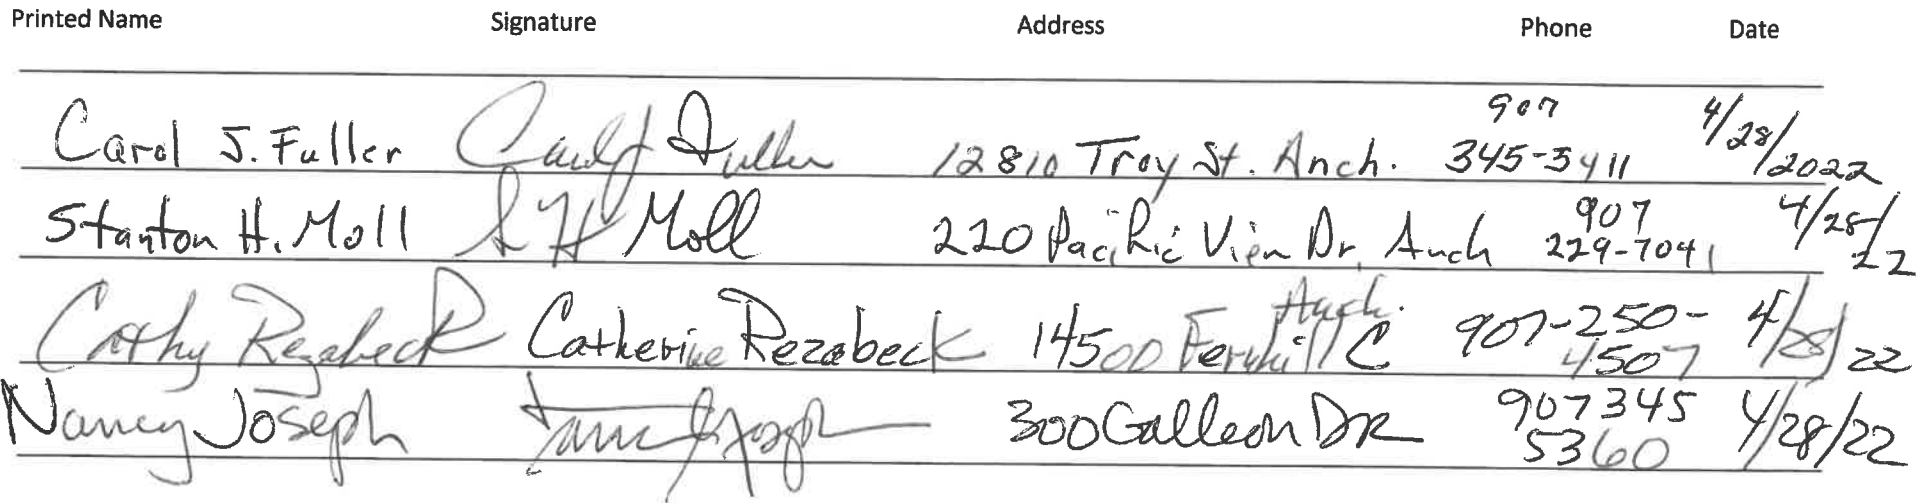 Printed Name Signature Address Phone Date
Carol J. Fuller Carol J Fuller 12810 Troy St. Anch. 907 345-5411 4/28/2022
Stanton H. Moll S H Moll 220 Pacific View Dr. Anch 907 229-7041 4/28/22
Cathy Rezabeck Catherine Rezabeck 14500 Fernhill C Anch. 907-250-4507 4/28/22
Nancy Joseph Nancy Joseph 300 Galleon DR 907 345 5360 4/28/22